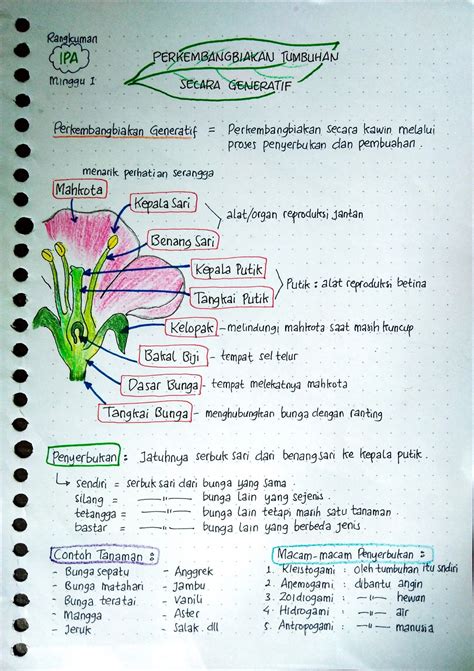 Rangkuman
IPA
Minggu I
PERKEMBANGBIAKAN TUMBUHAN
SECARA GENERATIF
Perkembangbiakan Generatif = Perkembangbiakan secara kawin melalui
proses penyerbukan dan pembuahan.
menarik perhatian serangga
Mahkota
Kepala Sari
alat/organ reproduksi jantan
Benang Sari
Kepala Putik
Putik : alat reproduksi betina
Tangkai Putik
Kelopak - melindungi mahkota saat masih kuncup
Bakal Biji - tempat sel telur
Dasar Bunga - tempat melekatnya mahkota
Tangkai Bunga - menghubungkan bunga dengan ranting
Penyerbukan : Jatuhnya serbuk sari dari benangsari ke kepala putik.
↳ sendiri = serbuk sari dari bunga yang sama.
silang = —〃— bunga lain yang sejenis.
tetangga = —〃— bunga lain tetapi masih satu tanaman.
bastar = —〃— bunga lain yang berbeda jenis.
Contoh Tanaman :
- Bunga sepatu
- Bunga matahari
- Bunga teratai
- Mangga
- Jeruk
- Anggrek
- Jambu
- Vanili
- Aster
- Salak. dll
Macam-macam Penyerbukan :
1. Kleistogami : oleh tumbuhan itu sndiri
2. Anemogami : dibantu angin
3. Zoidiogami : —〃— hewan
4. Hidrogami : —〃— air
5. Antropogami : —〃— manusia